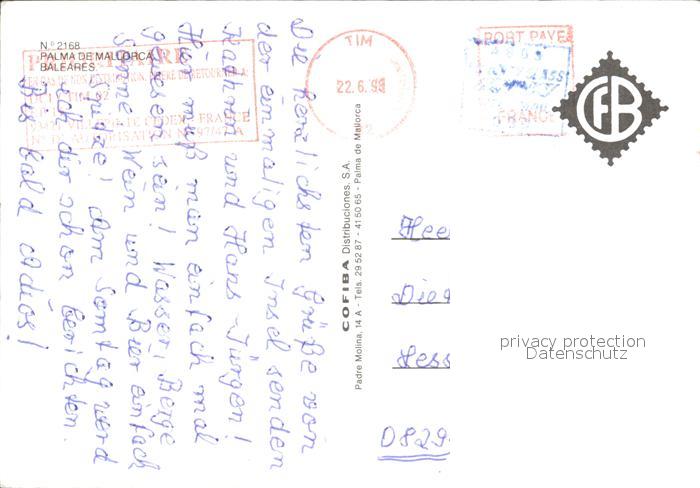 N.º 2168
PALMA DE MALLORCA
BALEARES
TIM
22.6.98
PORT PAYÉ
FRANCE
CFB
COFIBA Distribuciones, S.A.
Padre Molina, 14 A - Tels. 29 52 87 - 41 50 65 - Palma de Mallorca
Die herzlichsten Grüße von
der einmaligen Insel senden
Kathrin und Hans-Jürgen!
Hier muß man einfach mal
gewesen sein! Wasser, Berge
Sonne, Wein und Bier einfach
Spitze! Am Sonntag werd
ich dir schon berichten.
Bis bald Adiós!
Hee
Die
Hess
D829
privacy protection
Datenschutz